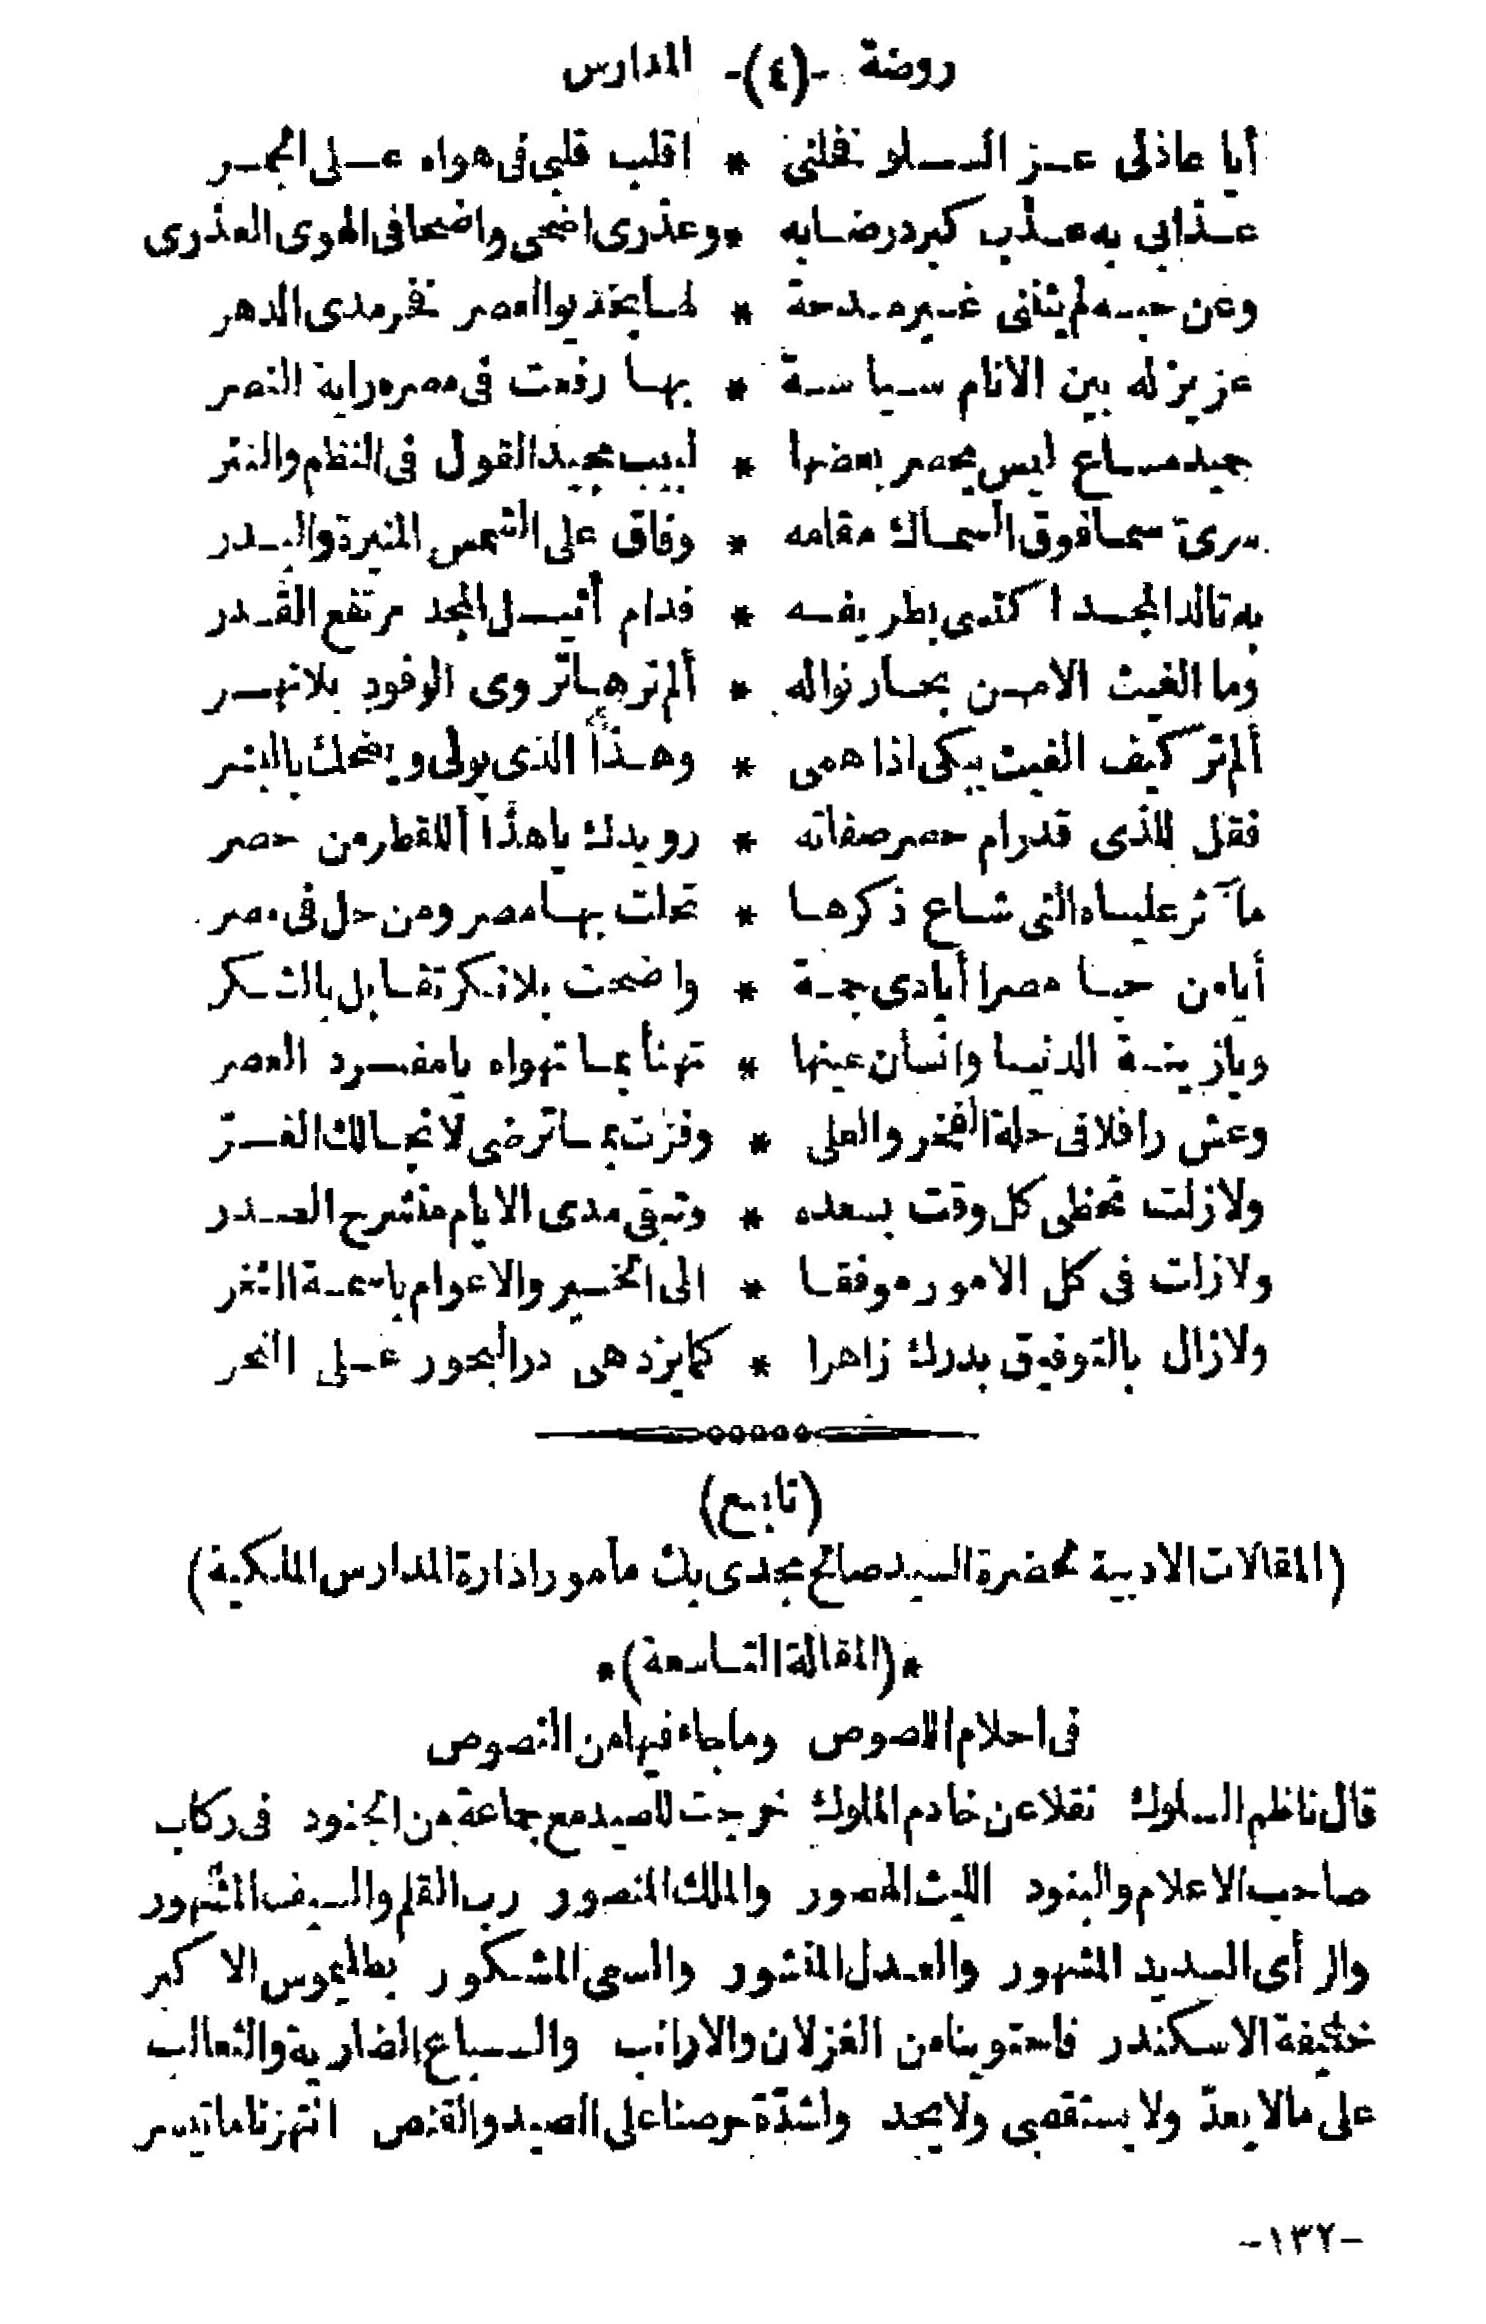 روضة -(٤)- المدارس
أيا عاذلى عز السلو فخلنى * اقلب قلبى فى هواه على الجمر
عذابى به عذب كبرد رضابه * وعذرى اضحى واضحا فى الهوى العذرى
وعن حبه لم يثننى غير مدحة * لها بخديو العصر فخر مدى الدهر
عزيز له بين الانام سياسة * بها رفعت فى مصره راية النصر
حميد مساع ليس يحصر بعضها * لبيب مجيد القول فى النظم والنثر
سرىّ سما فوق السماك مقامه * وفاق على الشمس المنيرة والبدر
به تالد المجد اكتسى بطريفه * فدام أثيل المجد مرتفع القدر
وما الغيث الا من بحار نواله * ألم ترها تروى الوفود بلا نهر
ألم تر كيف الغيث يبكى اذا همى * وهذا الذى يولى ويضحك بالبشر
فقل للذى قد رام حصر صفاته * رويدك يا هذا أللقطر من حصر
مآثر علياه التى شاع ذكرها * تحلت بها مصر ومن حل فى مصر
أيا من حبا مصرا أيادى جمة * واضحت بلا نكر تقابل بالشكر
ويا زينة الدنيا وانسان عينها * تهنأ بما تهواه يا مفرد العصر
وعش رافلا فى حلة الفخر والعلى * وفزت بما ترضى لانجالك الغرّ
ولا زلت تحظى كل وقت بسعده * وتبقى مدى الايام منشرح الصدر
ولا زلت فى كل الامور موفقا * الى الخير والاعوام باسمة الثغر
ولا زال بالتوفيق بدرك زاهرا * كما يزدهى در البحور على النحر
(تابع)
(المقالات الادبية لحضرة السيد صالح مجدى بك مأمور ادارة المدارس الملكية)
*(المقالة التاسعة)*
فى احلام اللصوص وما جاء فيها من النصوص
قال ناظم السلوك نقلا عن خادم الملوك خرجت للصيد مع جماعة من الجنود فى ركاب
صاحب الاعلام والبنود الليث الهصور والملك المنصور رب القلم والسيف المشهور
والرأى السديد المشهور والعدل المنشور والسعى المشكور بطليموس الاكبر
خليفة الاسكندر فاحتوينا من الغزلان والارانب والسباع الضارية والثعالب
على ما لا يعدّ ولا يستقصى ولا يحد ولشدّة حرصنا على الصيد والقنص انتهزنا ما تيسر
-١٣٢-